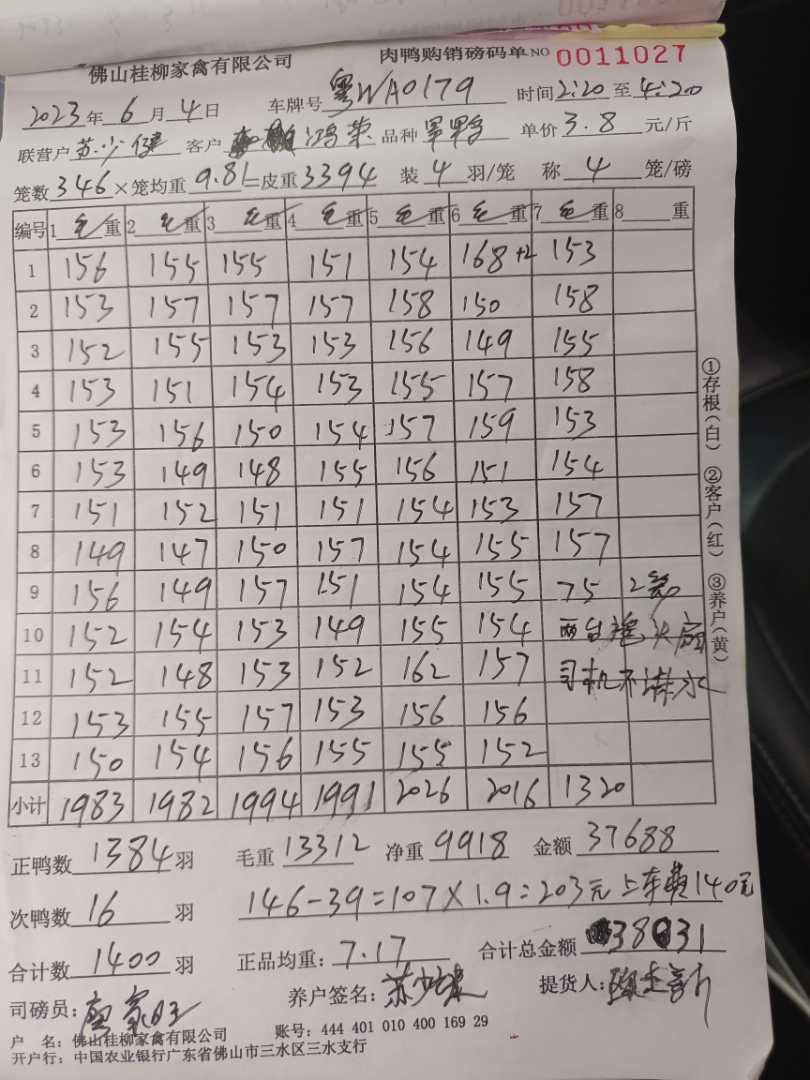 佛山桂柳家禽有限公司 肉鸭购销磅码单 NO 0011027
2023年6月4日 车牌号 粤WA0179 时间2:20至4:20
联营户 苏少健 客户 鸿荣 品种 单价3.8元/斤
笼数346×笼均重9.81=皮重3394 装4羽/笼 称4笼/磅
编号 1毛重 2毛重 3毛重 4毛重 5毛重 6毛重 7毛重 8重
1 156 155 155 151 154 168+2 153
2 153 157 157 157 158 150 158
3 152 155 153 153 156 149 155
4 153 151 154 153 155 157 158
5 153 156 150 154 157 159 153
6 153 149 148 155 156 151 154
7 151 152 151 151 154 153 157
8 149 147 150 157 154 155 157
9 156 149 157 151 154 155 75 2笼
10 152 154 153 149 155 154 两台摇头扇
11 152 148 153 152 162 157 司机不排水
12 153 155 157 153 156 156
13 150 154 156 155 155 152
小计 1983 1982 1994 1991 2026 2016 1320
正鸭数1384羽 毛重13312 净重9918 金额37688
次鸭数16羽 146-39=107×1.9=203元 上车费140元
合计数1400羽 正品均重:7.17 合计总金额38031
司磅员: 养户签名: 提货人:
户 名:佛山桂柳家禽有限公司 账号:444 401 010 400 169 29
开户行:中国农业银行广东省佛山市三水区三水支行
①存根(白) ②客户(红) ③养户(黄)